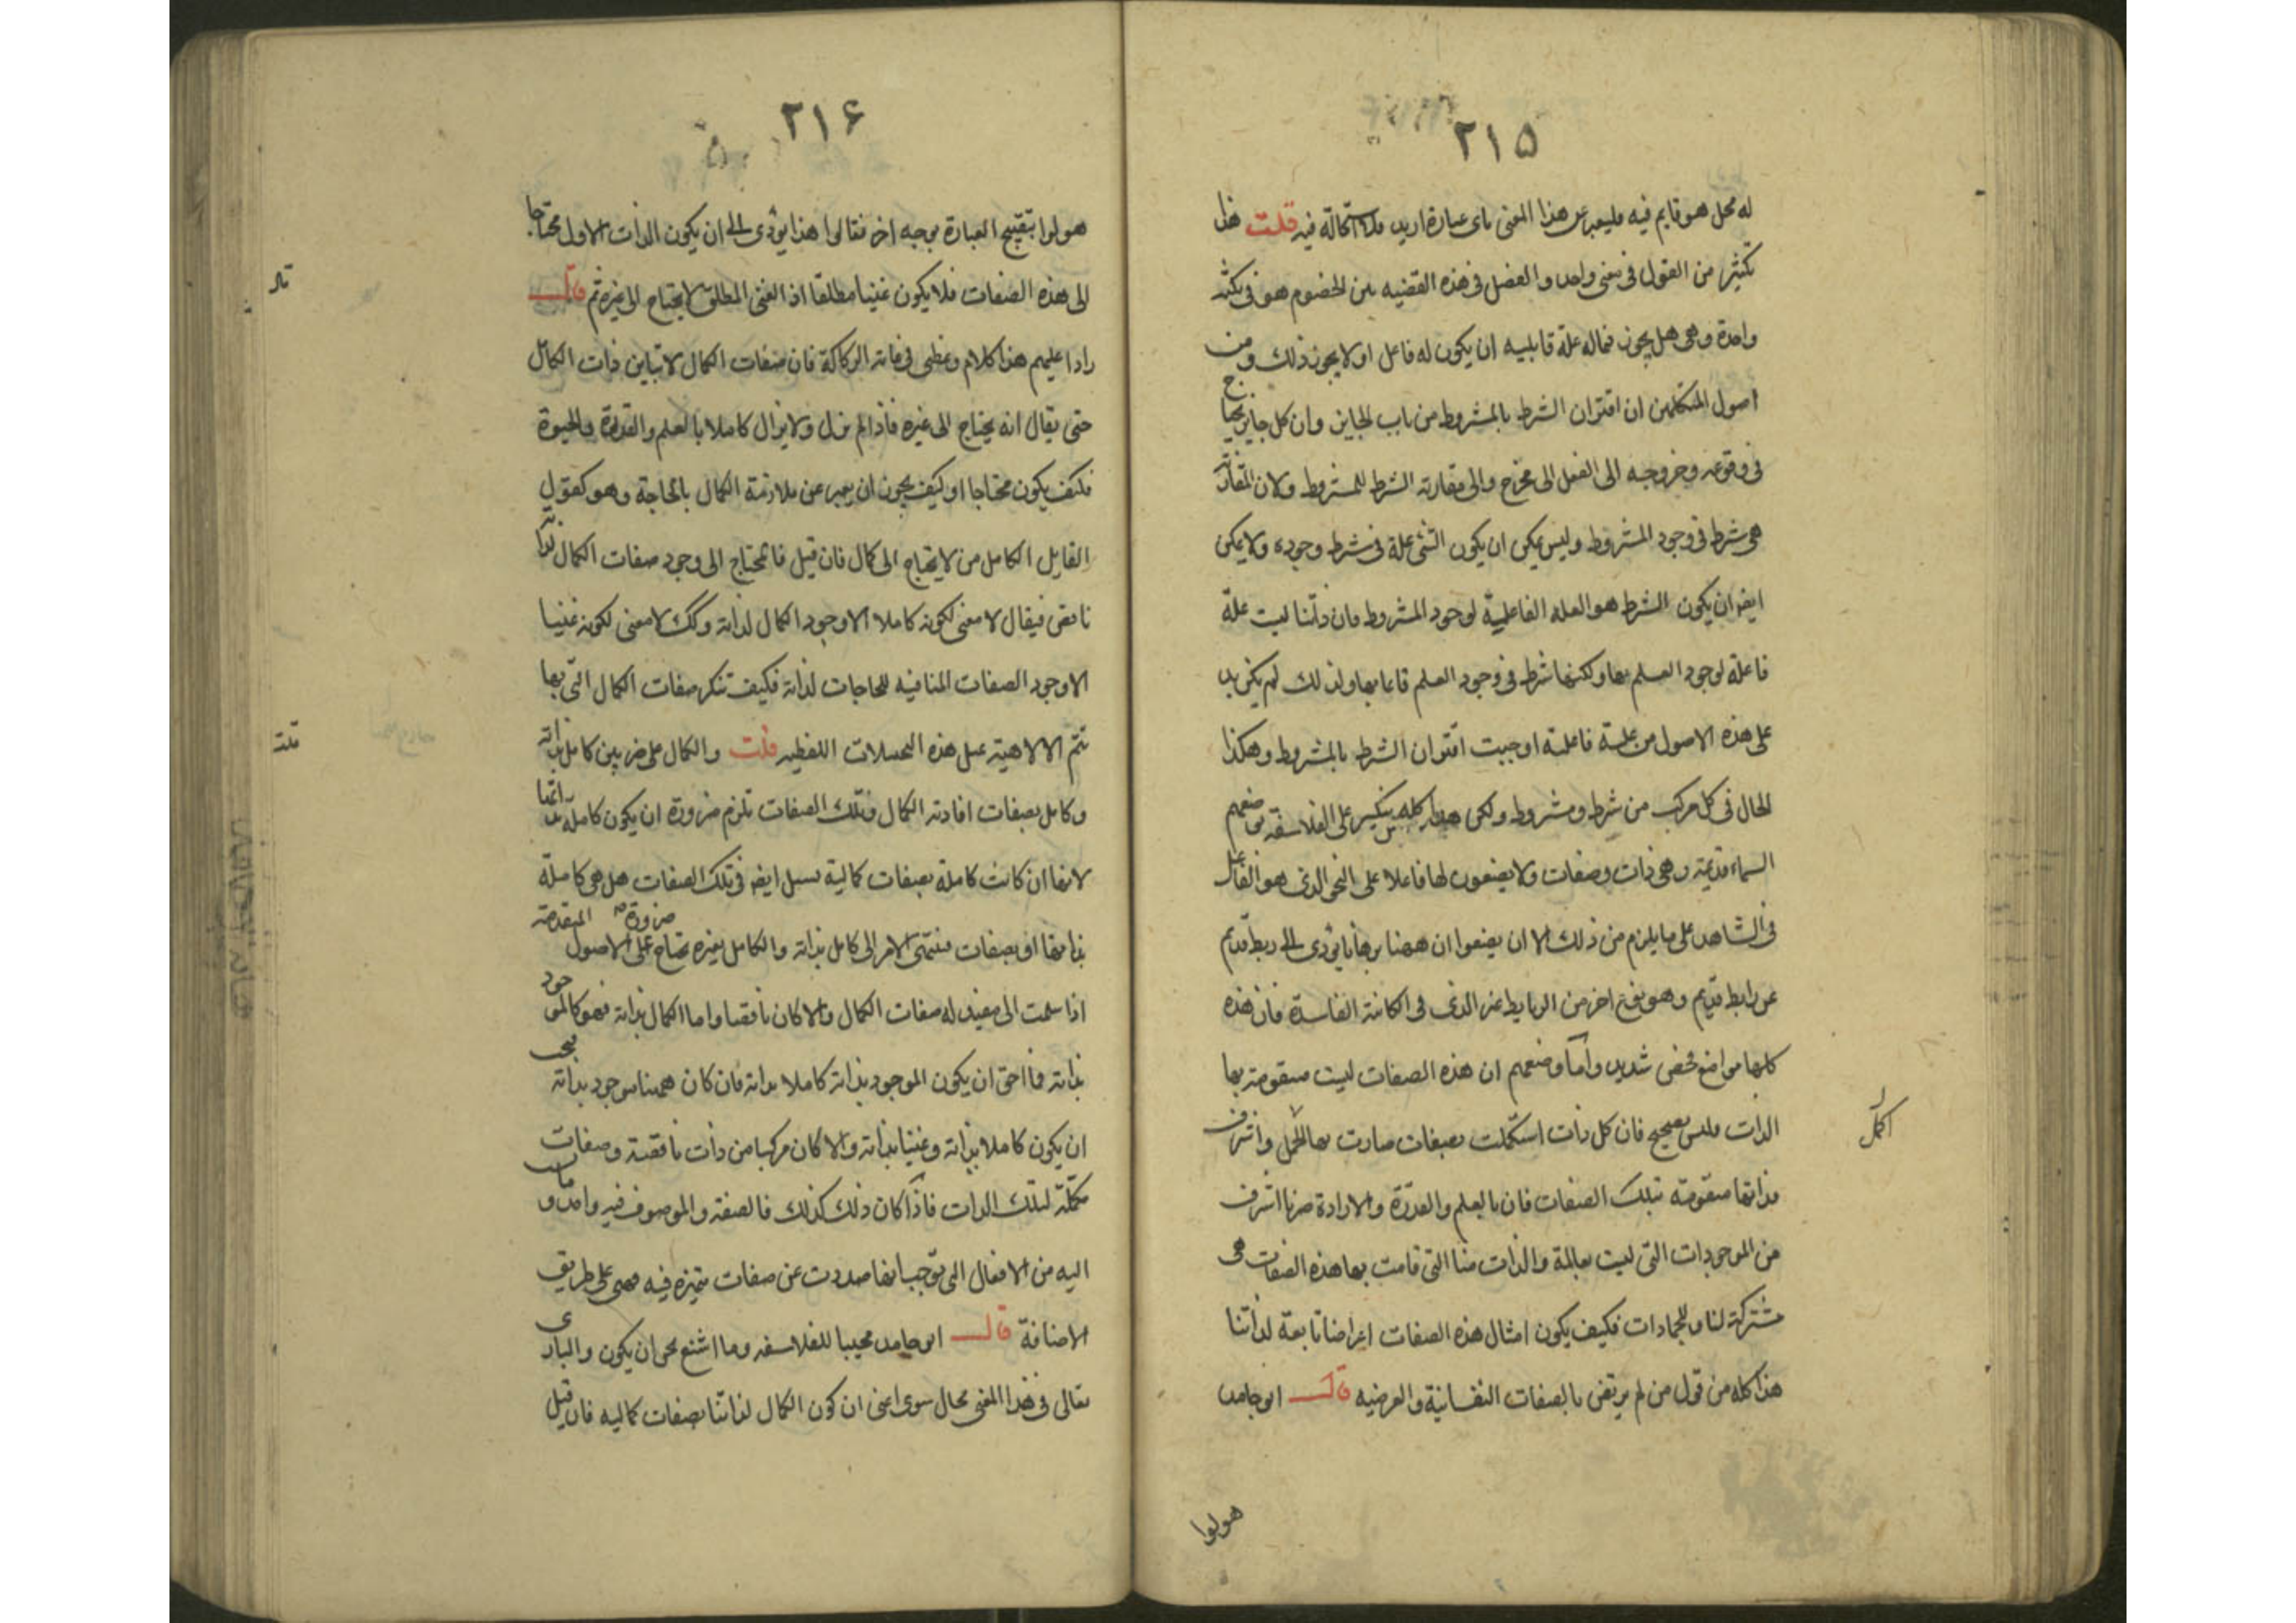 ٢١٥
له محل هو قايم فيه فليعبر عن هذا المعنى باى عبارة اريد فلا استحالة فيه قلت هذا
تكثير من القول فى معنى واحد والفصل فى هذه القضيه بين الخصوم هو فى نكتة
واحدة وهى هل يجوز فماله علة قابليه ان يكون له فاعل او لا يجوز ذلك ومن
اصول المتكلمين ان اقتران الشرط بالمشروط من باب الجايز وان كل جايز يحتاج
فى وقوعه وخروجه الى الفعل الى مخرج والى مقارنة الشرط للمشروط ولان المقارنة
هى شرط فى وجود المشروط وليس يمكن ان يكون الشئ علة فى شرط وجوده ولا يمكن
ايضا ان يكون الشرط هو العله الفاعلية لوجود المشروط فان ذاتنا ليست علة
فاعلة لوجود العلم بها ولكنها شرط فى وجود العلم قاعا بها ولذلك لم يكن بد
على هذه الاصول من علة فاعلة اوجبت اقتران الشرط بالمشروط وهكذا
الحال فى كل مركب من شرط ومشروط ولكن هذا كله ينكسر على الفلاسفة بوضعهم
السماء قديمة وهى ذات وصفات ولا يضعون لها فاعلا على النحو الذى هو الفاعل
فى الشاهد على ما يلزم من ذلك الا ان يضعوا ان ههنا برهانا يؤدى الى ربط قديم
عن رابط قديم وهو نوع اخر من الرباط غير الذى فى الكائنة الفاسدة فان هذه
كلها مواضع فحص شديد واما وضعهم ان هذه الصفات ليست متقومة بها
الذات فليس بصحيح فان كل ذات استكملت بصفات صارت بها اكمل واشرف
اكمل
فذاتها متقومة بتلك الصفات فان بالعلم والقدرة والارادة صرنا اشرف
من الموجودات التى ليست بعالمة والذات منا التى قامت بها هذه الصفات هى
مشتركة لنا وللجمادات فكيف يكون امثال هذه الصفات اعراضا تابعة لذاتنا
هذا كله من قول من لم يرتض بالصفات النفسانية والعرضيه قال ابو حامد
هولوا
٢١۶
هولوا بتقبيح العبارة بوجه اخر فقالوا هذا يؤدى الى ان يكون الذات الاول محتاجا
الى هذه الصفات فلا يكون غنيا مطلقا اذ الغنى المطلق لا يحتاج الى غيره ثم قال
قال
رادا عليهم هذا كلام وعظى فى غاية الركاكة فان صفات الكمال لا تباين ذات الكمال
حتى يقال انه يحتاج الى غيره فاذا لم يزل ولا يزال كاملا بالعلم والقدرة والحيوة
فكيف يكون محتاجا او كيف يجوز ان يعبر عن ملازمة الكمال بالحاجة وهو كقول
القايل الكامل من لا يحتاج الى كمال فان قيل فالمحتاج الى وجود صفات الكمال لذاته
ناقص فيقال لا معنى لكونه كاملا الا وجود الكمال لذاته وكك لا معنى لكونه غنيا
الا وجود الصفات المنافيه للحاجات لذاته فكيف تنكر صفات الكمال التى بها
تتم الالاهية بمثل هذه التخييلات اللفظيه قلت والكمال على ضربين كامل بذاته
قلت
وكامل بصفات افادته الكمال وتلك الصفات تلزم ضرورة ان يكون كاملة بذاتها
لانها ان كانت كاملة بصفات كمالية يسئل ايضا فى تلك الصفات هل هى كاملة
بذاتها او بصفات فينتهى الامر الى كامل بذاته والكامل بغيره يحتاج ضرورة على الاصول المتقدمة
اذا سلمت الى مفيد له صفات الكمال والا كان ناقصا واما الكمال بذاته فهو كالموجود
بذاته فما احق ان يكون الموجود بذاته كاملا بذاته فان كان ههنا موجود بذاته فيجب
ان يكون كاملا بذاته وغنيا بذاته والا كان مركبا من ذات ناقصة وصفات
مكملة لتلك الذات فاذا كان ذلك كذلك فالصفة والموصوف فيه واحد وما نسب
اليه من الافعال التى توجب انها صدرت عن صفات متميزة فيه فهى على طريق
الاضافة قال ابو حامد مجيبا للفلاسفه وما اشنع نحو ان يكون والبارى
تعالى فى هذا المعنى بحال سوى اعنى ان كون الكمال لذاتنا بصفات كماليه فان قيل